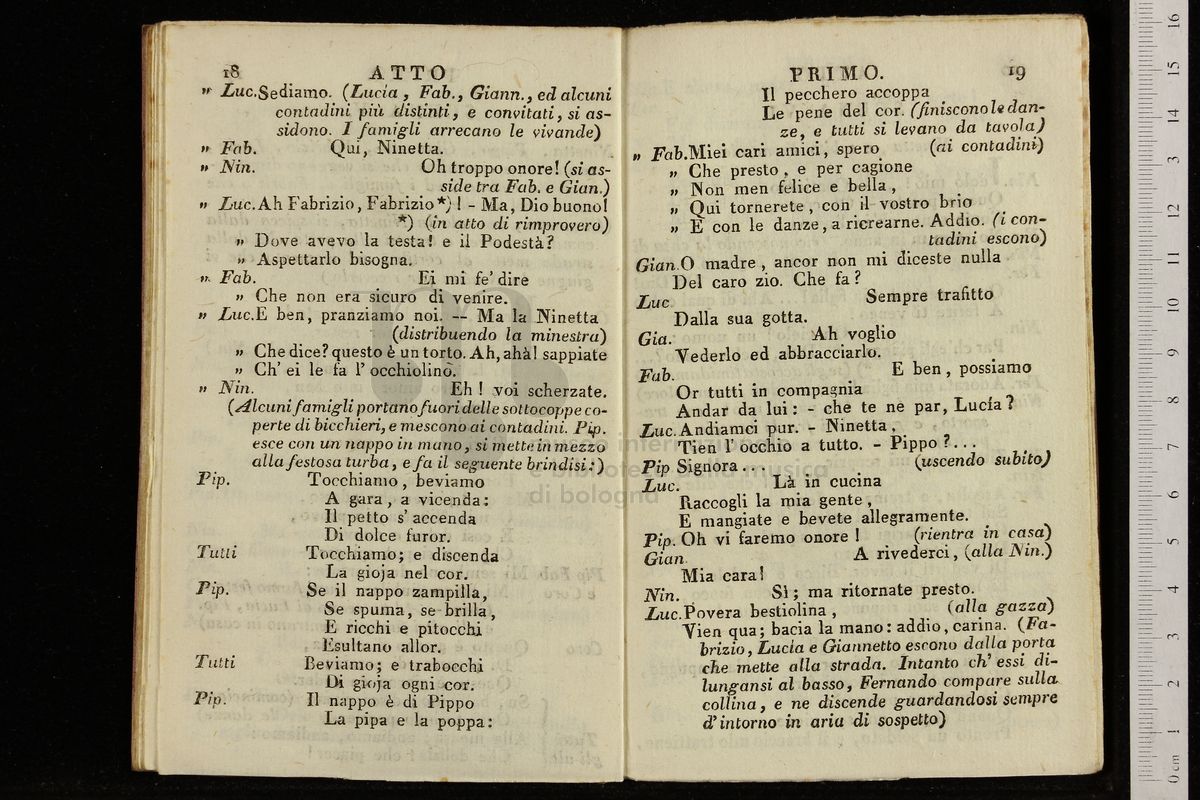 18 ATTO
" Luc. Sediamo. (Lucia, Fab., Giann., ed alcuni
contadini più distinti, e convitati, si as-
sidono. I famigli arrecano le vivande)
" Fab. Qui, Ninetta.
" Nin. Oh troppo onore! (si as-
side tra Fab. e Gian.)
" Luc. Ah Fabrizio, Fabrizio *)! - Ma, Dio buono!
*) (in atto di rimprovero)
" Dove avevo la testa! e il Podestà?
" Aspettarlo bisogna.
" Fab. Ei mi fe' dire
" Che non era sicuro di venire.
" Luc. E ben, pranziamo noi. — Ma la Ninetta
(distribuendo la minestra)
" Che dice? questo è un torto. Ah, ahà! sappiate
" Ch' ei le fa l' occhiolino.
" Nin. Eh! voi scherzate.
(Alcuni famigli portano fuori delle sottocoppe co-
perte di bicchieri, e mescono ai contadini. Pip.
esce con un nappo in mano, si mette in mezzo
alla festosa turba, e fa il seguente brindisi:)
Pip. Tocchiamo, beviamo
A gara, a vicenda:
Il petto s' accenda
Di dolce furor.
Tutti Tocchiamo; e discenda
La gioja nel cor.
Pip. Se il nappo zampilla,
Se spuma, se brilla,
E ricchi e pitocchi
Esultano allor.
Tutti Beviamo; e trabocchi
Di gioja ogni cor.
Pip. Il nappo è di Pippo
La pipa e la poppa:
PRIMO. 19
Il pecchero accoppa
Le pene del cor. (finiscono le dan-
ze, e tutti si levano da tavola)
" Fab. Miei cari amici, spero (ai contadini)
" Che presto, e per cagione
" Non men felice e bella,
" Qui tornerete, con il vostro brio
" E con le danze, a ricrearne. Addio. (i con-
tadini escono)
Gian. O madre, ancor non mi diceste nulla
Del caro zio. Che fa?
Luc. Sempre trafitto
Dalla sua gotta.
Gia. Ah voglio
Vederlo ed abbracciarlo.
Fab. E ben, possiamo
Or tutti in compagnia
Andar da lui: - che te ne par, Lucía?
Luc. Andiamci pur. - Ninetta,
Tien l' occhio a tutto. - Pippo?...
Pip Signora... (uscendo subito)
Luc. Là in cucina
Raccogli la mia gente,
E mangiate e bevete allegramente.
Pip. Oh vi faremo onore! (rientra in casa)
Gian. A rivederci, (alla Nin.)
Mia cara!
Nin. Sì; ma ritornate presto.
Luc. Povera bestiolina, (alla gazza)
Vien qua; bacia la mano: addio, carina. (Fa-
brizio, Lucia e Giannetto escono dalla porta
che mette alla strada. Intanto ch' essi di-
lungansi al basso, Fernando compare sulla
collina, e ne discende guardandosi sempre
d' intorno in aria di sospetto)
museo internazionale
e biblioteca della musica
di bologna
0 cm 1 2 3 4 5 6 7 8 9 10 11 12 13 14 15 16